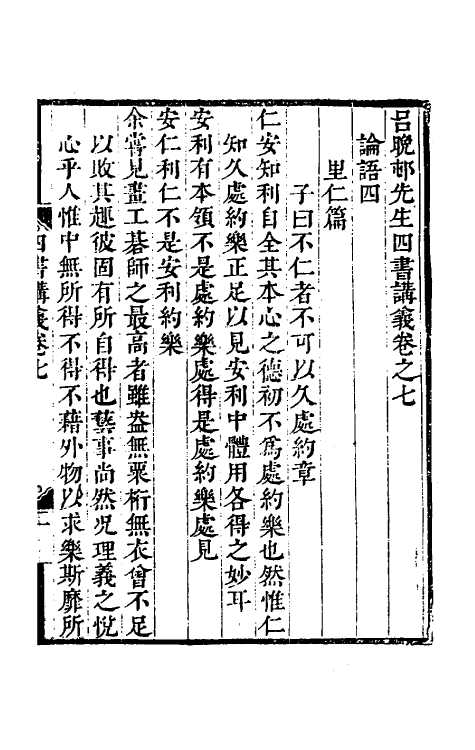 呂晚邨先生四書講義卷之七
論語四
里仁篇
子曰不仁者不可以久處約章
仁安知利自全其本心之德初不爲處約樂也然惟仁
知久處約樂正足以見安利中體用各得之妙耳
安利有本領不是處約樂處得是處約樂處見
安仁利仁不是安利約樂
余嘗見畫工碁師之最高者雖盎無粟桁無衣曾不足
以敗其趣彼固有所自得也藝事尚然况理義之悅
心乎人惟中無所得不得不藉外物以求樂斯靡所
四書講義卷七
一